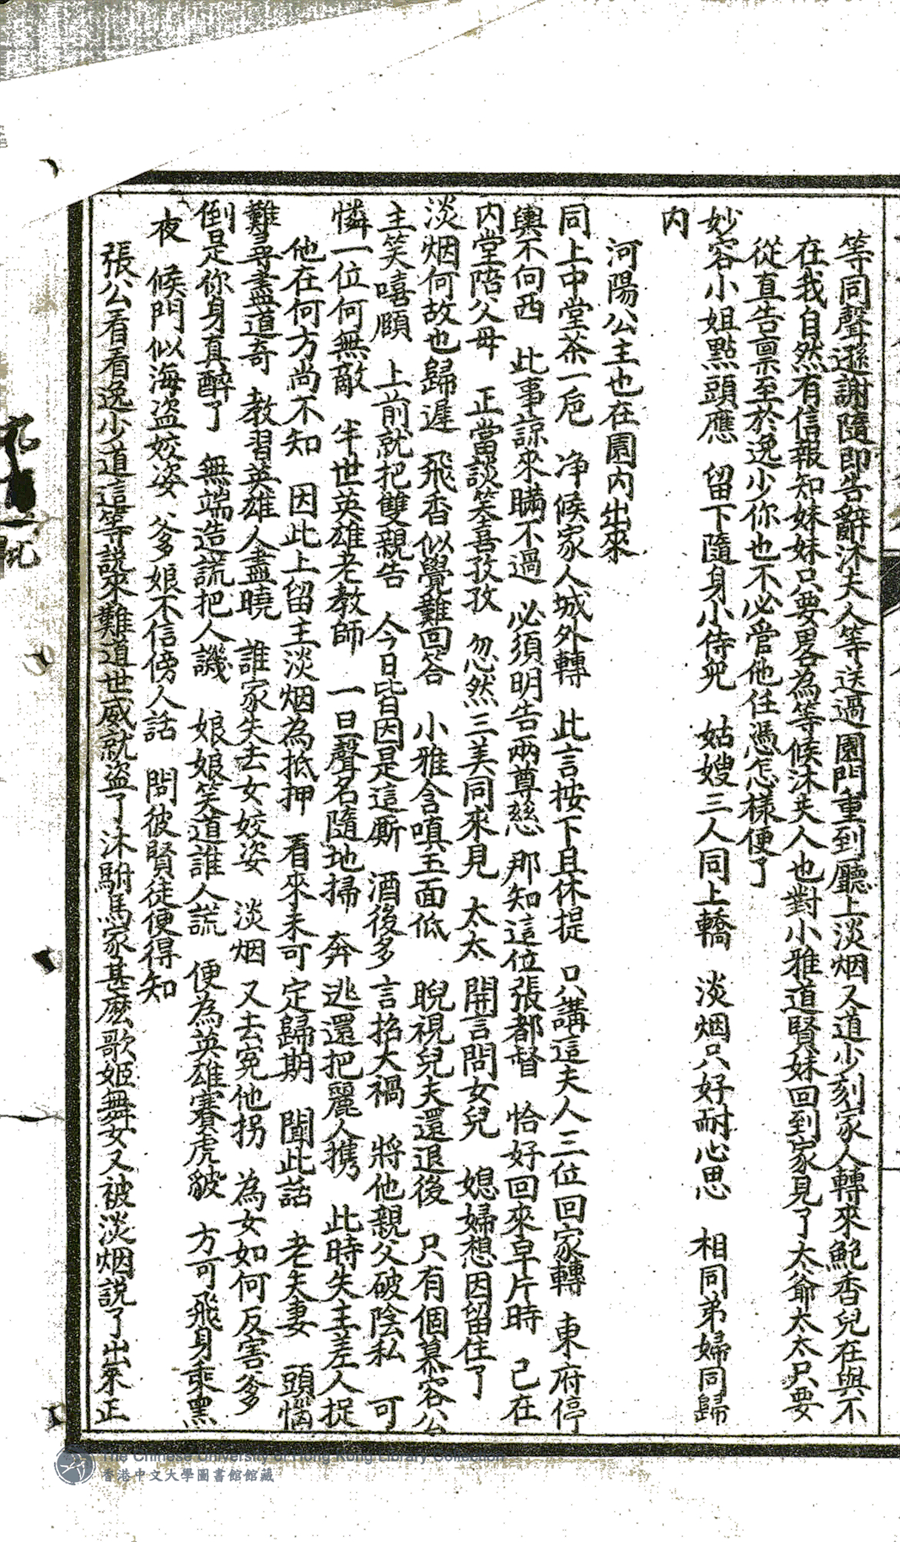 等同聲遜謝隨即告辭沐夫人等送過園門重到廳上淡烟又道少刻家人轉來鮑香兒在與不
在我自然有信報知妹妹只要畧為等候沐夫人也對小雅道賢妹回到家見了太爺太太只要
從直告禀至於逸少你也不必管他任憑怎樣便了
妙容小姐點頭應 留下隨身小侍兒 姑嫂三人同上轎 淡烟只好耐心思 相同弟婦同歸
内
河陽公主也在園内出來
同上中堂茶一卮 净候家人城外轉 此言按下且休提 只講這夫人三位回家轉 東府停
輿不向西 此事諒來瞞不過 必須明告兩尊慈 那知這位張都督 恰好回來早片時 已在
内堂陪父母 正當談笑喜孜孜 忽然三美同來見 太太開言問女兒 媳婦想因留住了
淡烟何故也歸遲 飛香似覺難回答 小雅含嗔玉面低 睨視兒夫還退後 只有個慕容公
主笑嘻頤 上前就把雙親告 今日皆因是這厮 酒後多言招大禍 將他親父破陰私 可
憐一位何無敵 半世英雄老教師 一旦聲名隨地掃 奔逃還把麗人携 此時失主差人捉
他在何方尚不知 因此上留主淡烟為抵押 看來未可定歸期 聞此話 老夫妻 頭惱
難尋盡道奇 教習英雄人盡曉 誰家失去女姣姿 淡烟又去冤他拐 為女如何反害爹
倒是你身真醉了 無端造謊把人譏 娘娘笑道誰人謊 便為英雄賽虎貔 方可飛身乘黑
夜 候門似海盗姣姿 爹娘不信傍人話 問彼賢徒便得知
張公看看逸少道這等說來難道世威就盗了沐駙馬家甚麽歌姬舞女又被淡烟説了出來正
The Chinese University of Hong Kong Library Collection
香港中文大學圖書館館藏